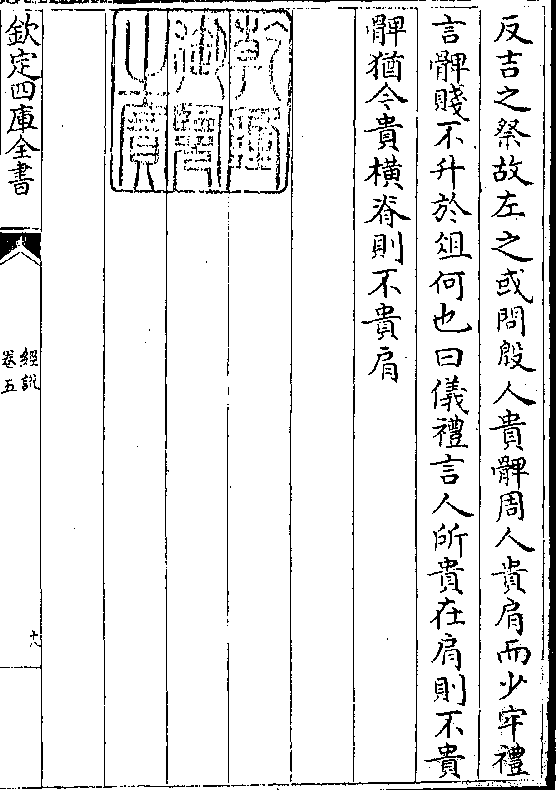 反吉之祭故左之或問殷人貴髀周人貴肩而少牢禮
言髀賤不升於俎何也曰儀禮言人所貴在肩則不貴
髀猶令貴橫脊則不貴肩
乾隆
御覽
之寶
欽定四庫全書
經說
卷五
十八